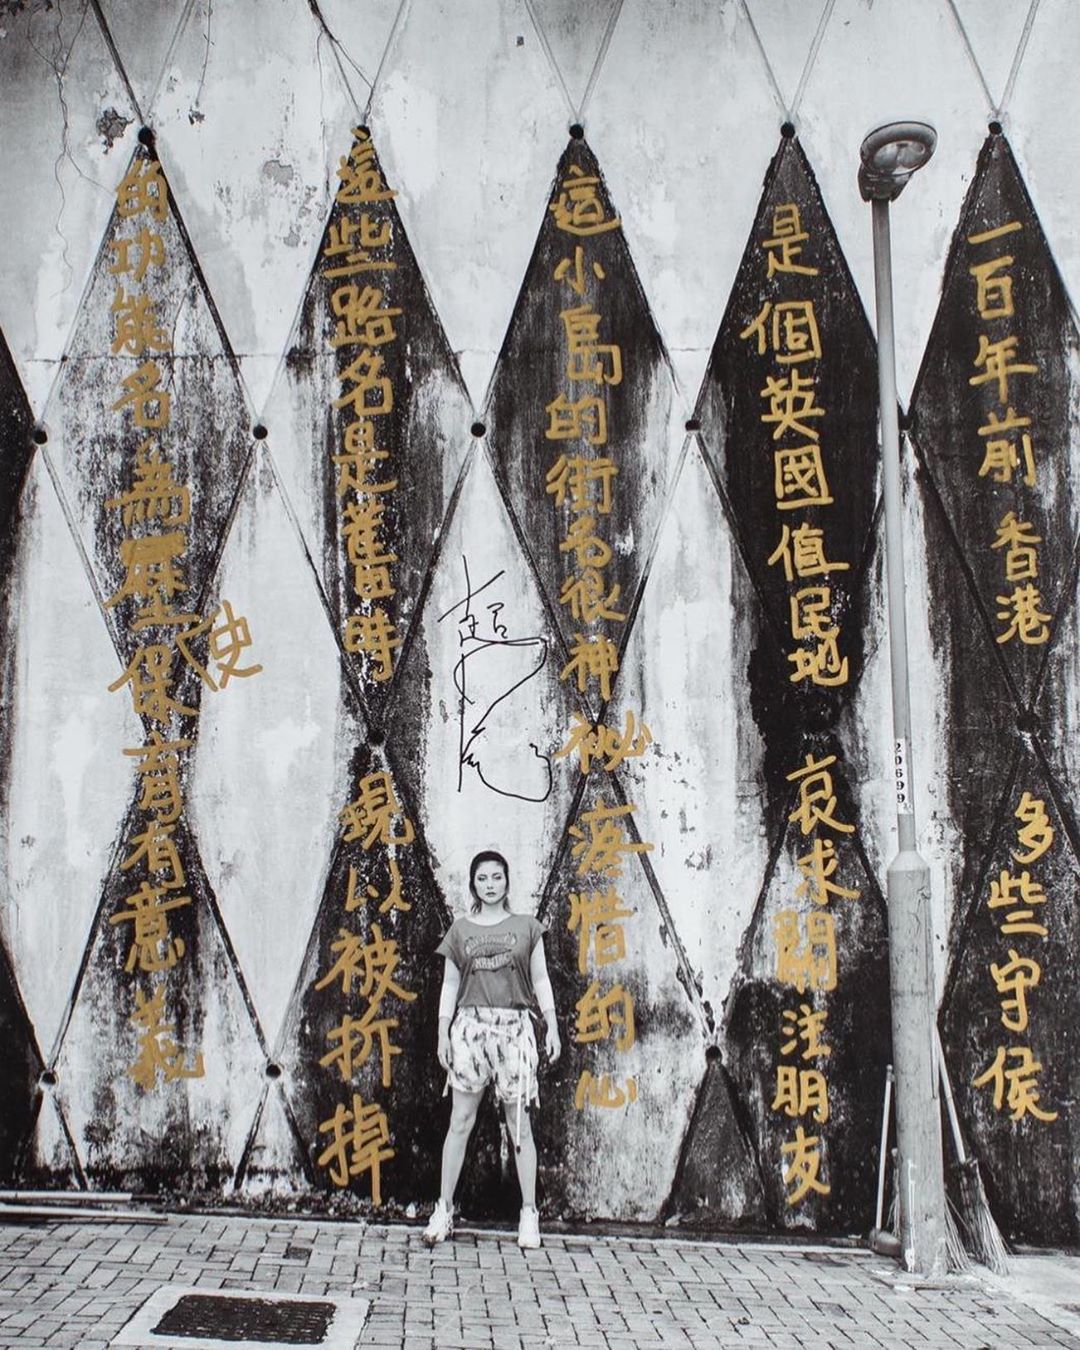 一百年前 香港 多些守侯
是個英國值民地 哀求關注朋友
這小島的街名很神祕 疼惜的心
這些路名是舊時 現以被折掉
的功能名為歷史保育有意義
20699